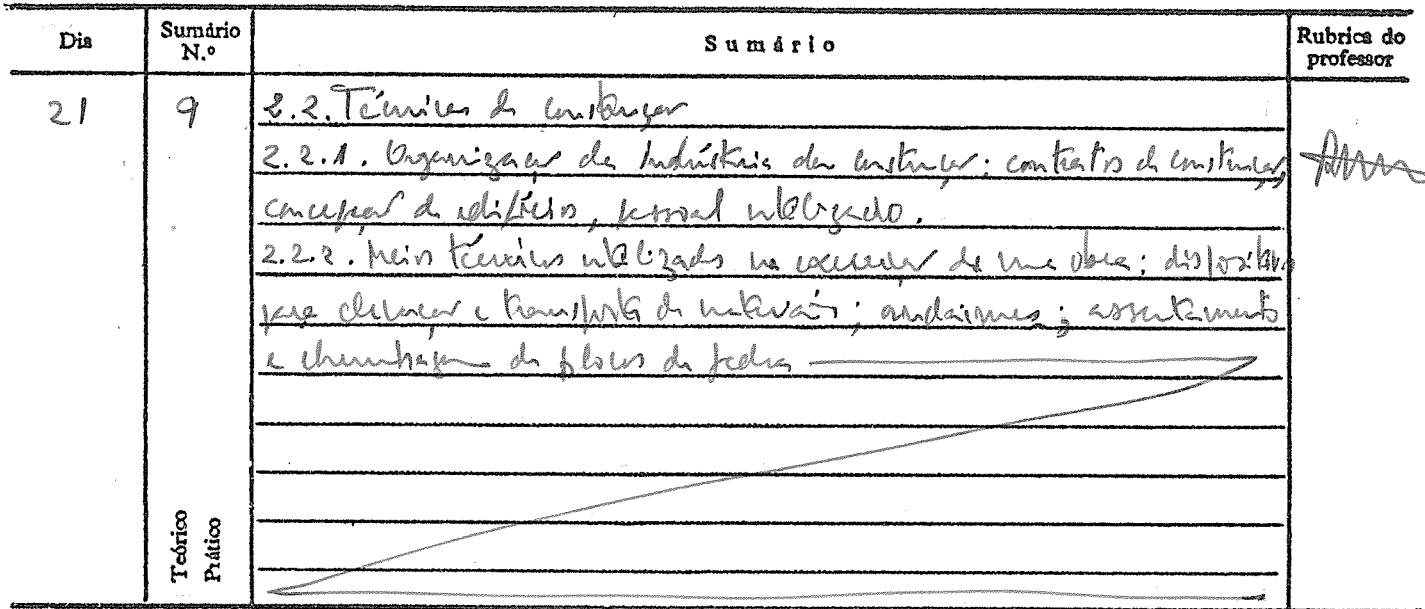 Dia
Sumário N.º
Sumário
Rubrica do professor
21
9
2.2. Técnicas de construção
2.2.1. Organização da Indústria da construção: contratos de construção,
concepção de edifícios, pessoal utilizado.
2.2.2. Meios técnicos utilizados na execução de uma obra: dispositivos
para elevação e transporte de materiais; andaimes; assentamento
e chumbagem de blocos de pedra
Teórico
Prático